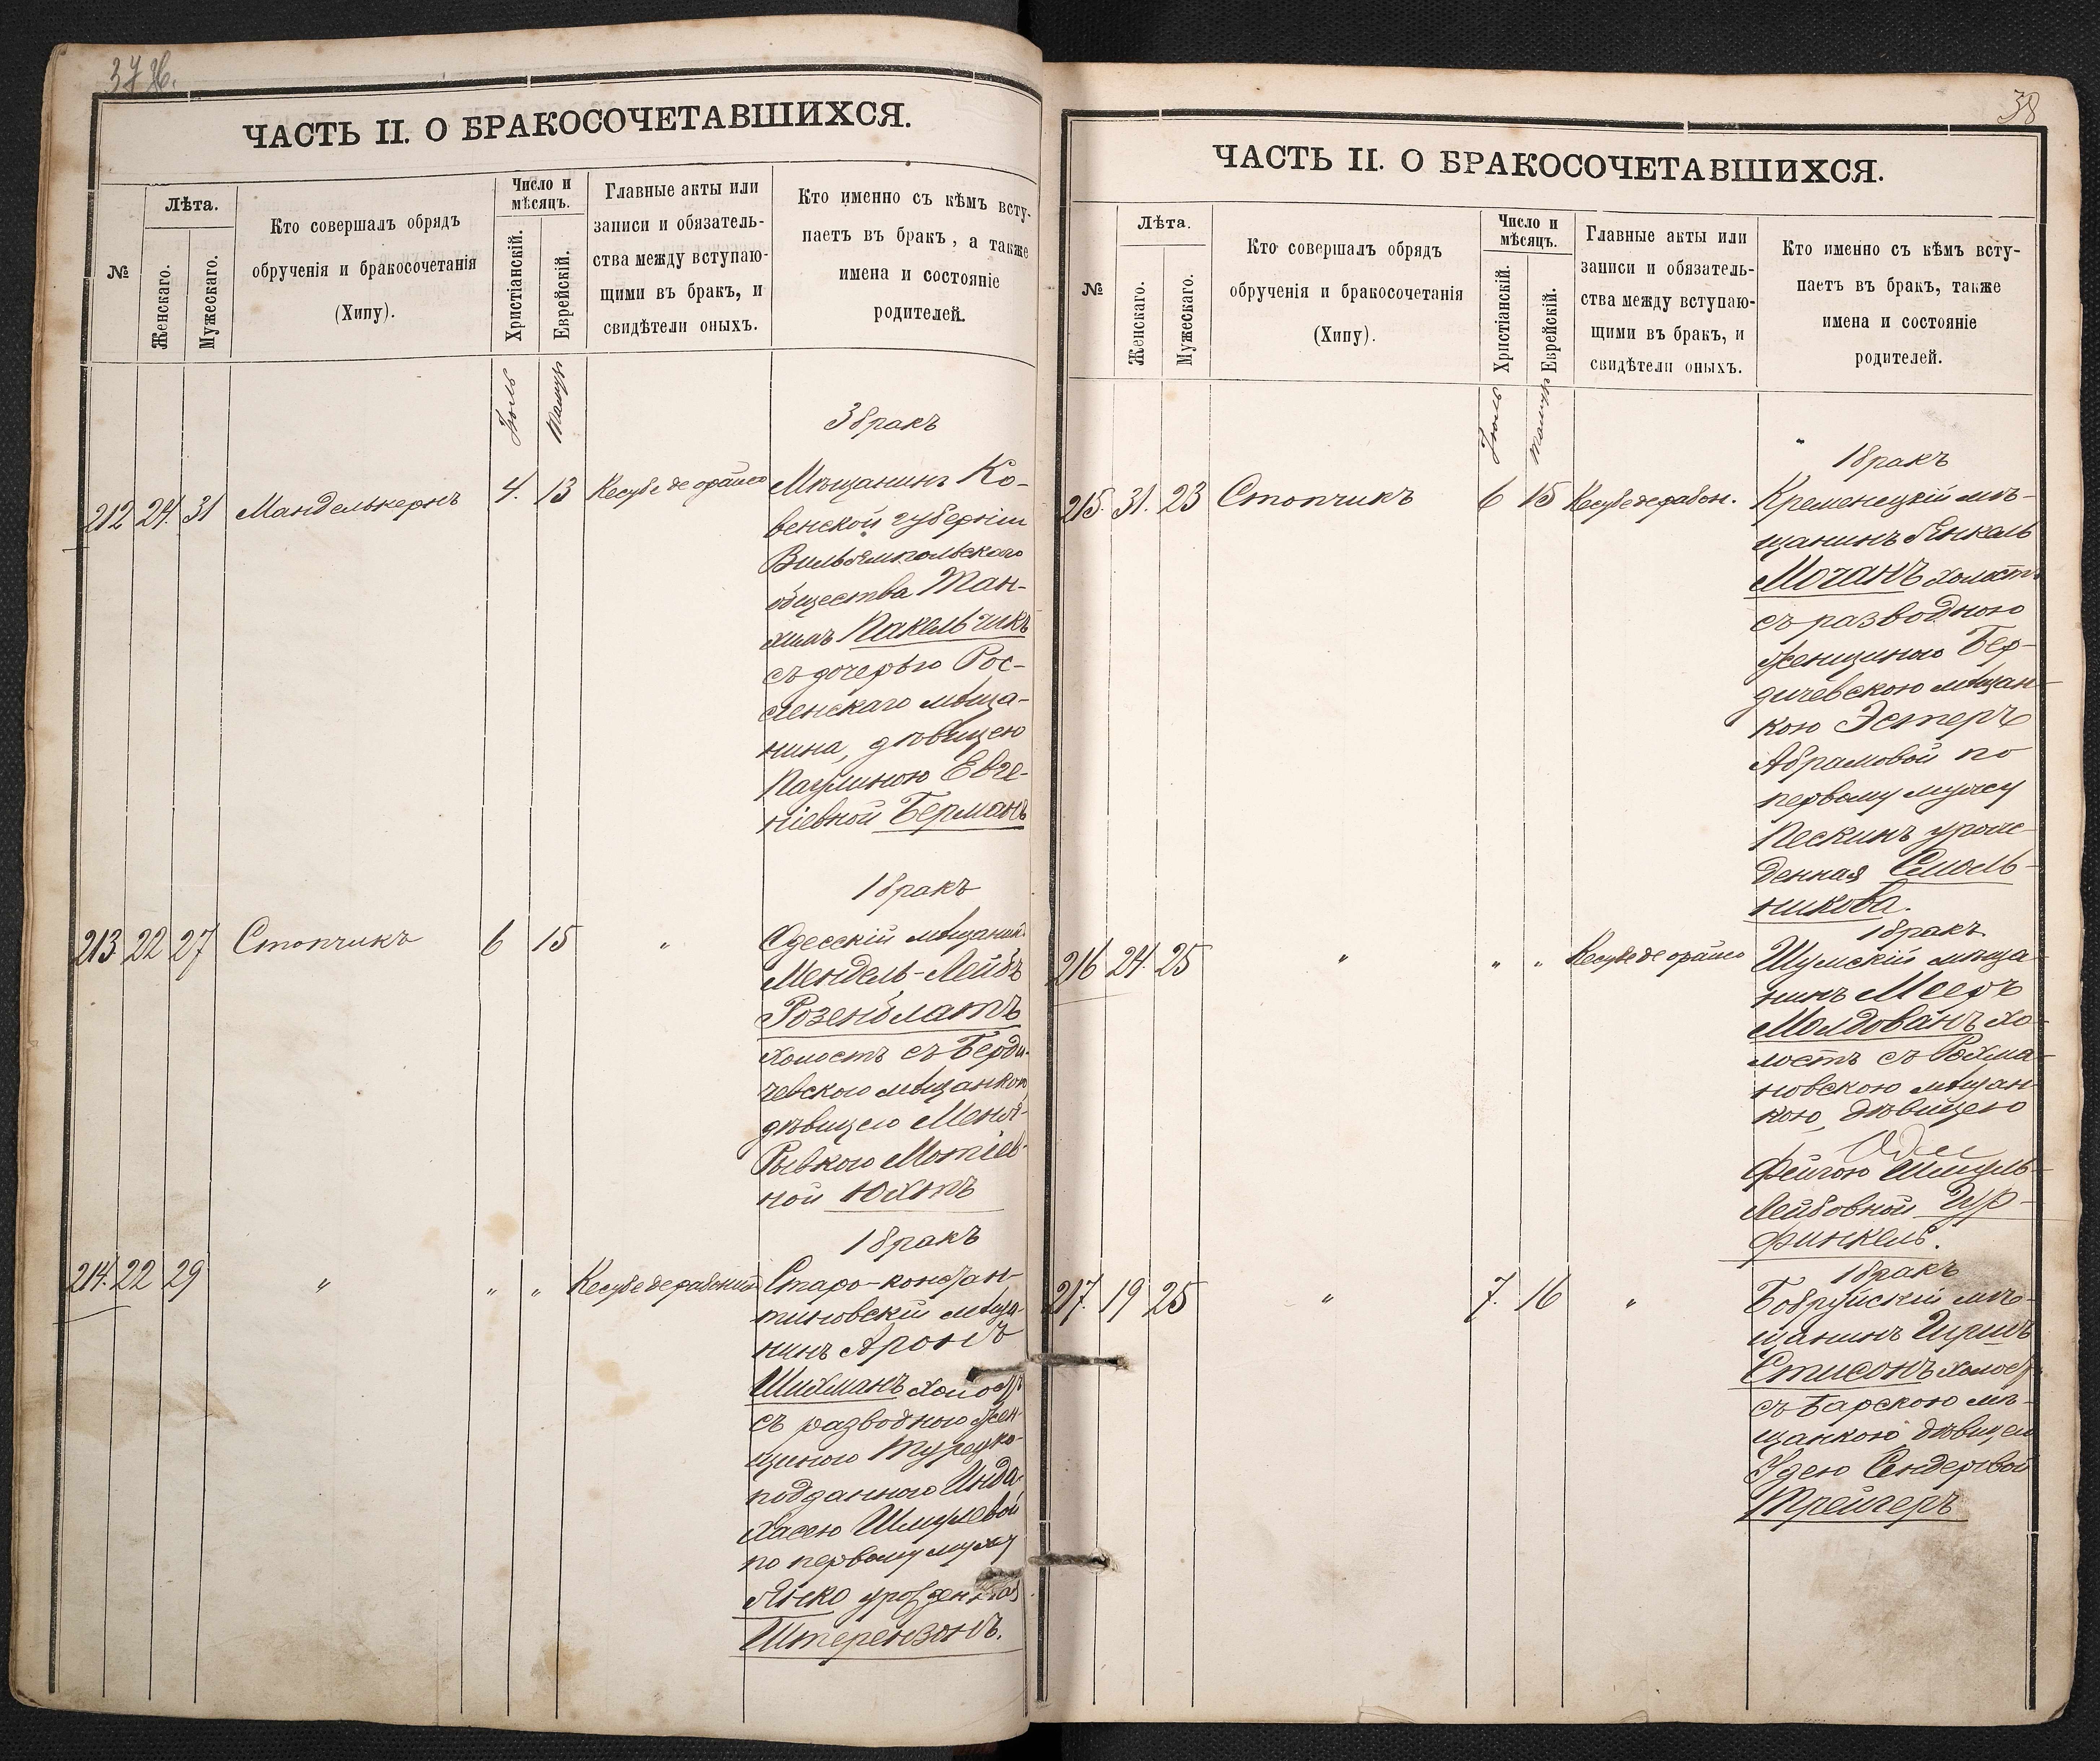 37 об.
ЧАСТЬ II. О БРАКОСОЧЕТАВШИХСЯ.
№
Лѣта.
Женскаго.
Мужескаго.
Кто совершалъ обрядъ
обрученія и бракосочетанія
(Хипу).
Число и
мѣсяцъ.
Христіанскій.
Еврейскій.
Главные акты или
записи и обязатель-
ства между вступаю-
щими въ бракъ, и
свидѣтели оныхъ.
Кто именно съ кѣмъ всту-
паетъ въ бракъ, а также
имена и состояніе
родителей.
Іюль
Тамузъ
3 бракъ
212 24. 31 Манделькернъ 4. 13 Кесубе де орайсо Мѣщанинъ Ко-
венской губерніи
Вильямпольскаго
общества Тан-
химъ Пакельчикъ
съ дочерью Рос-
сіенскаго мѣща-
нина, дѣвицею
Паулиною Евге-
ніевной Берманъ
1 бракъ
213 22 27 Стопчикъ 6 15 " Одесскій мѣщанинъ
Мендель-Лейбъ
Розенблатъ
холостъ съ Берди-
чевскою мѣщанкою
дѣвицею Меня-
Рывкою Мотіев-
ной Юхтъ
1 бракъ
214. 22 29 " " " Кесубе дерабонинъ Старо-констан-
тиновскій мѣща-
нинъ Аронъ
Шихманъ холостъ
съ разводною жен-
щиною Турецко-
подданною Инда-
Хасею Шмулевой
по первому мужу
Янко урожденная
Штерензонъ.
38
ЧАСТЬ II. О БРАКОСОЧЕТАВШИХСЯ.
№
Лѣта.
Женскаго.
Мужескаго.
Кто совершалъ обрядъ
обрученія и бракосочетанія
(Хипу).
Число и
мѣсяцъ.
Христіанскій.
Еврейскій.
Главные акты или
записи и обязатель-
ства между вступаю-
щими въ бракъ, и
свидѣтели оныхъ.
Кто именно съ кѣмъ всту-
паетъ въ бракъ, также
имена и состояніе
родителей.
Іюль
Тамузъ
1 бракъ
215. 31. 23 Стопчикъ 6 15 Кесубе дерабон. Кременецкій мѣ-
щанинъ Янкель
Мочанъ холостъ
съ разводною
женщиною Бер-
дичевскою мѣщан-
кою Эстеръ
Абрамовой по
первому мужу
Пескинъ урож-
денная Смоль-
никова.
1 бракъ
216 24. 25 " " " Кесубе де орайсо Шумскій мѣща-
нинъ Мееръ
Молдованъ хо-
лостъ съ Рахма-
новскою мѣщан-
кою, дѣвицею
Одес
Фейгою Шмуль-
Лейбовной Гур-
финкель.
1 бракъ
217. 19 25 " 7. 16 " Бобруйскій мѣ-
щанинъ Гиршъ
Стисонъ холостъ
съ Барскою мѣ-
щанкою дѣвицею
Удею Сендеровой
Трейгеръ